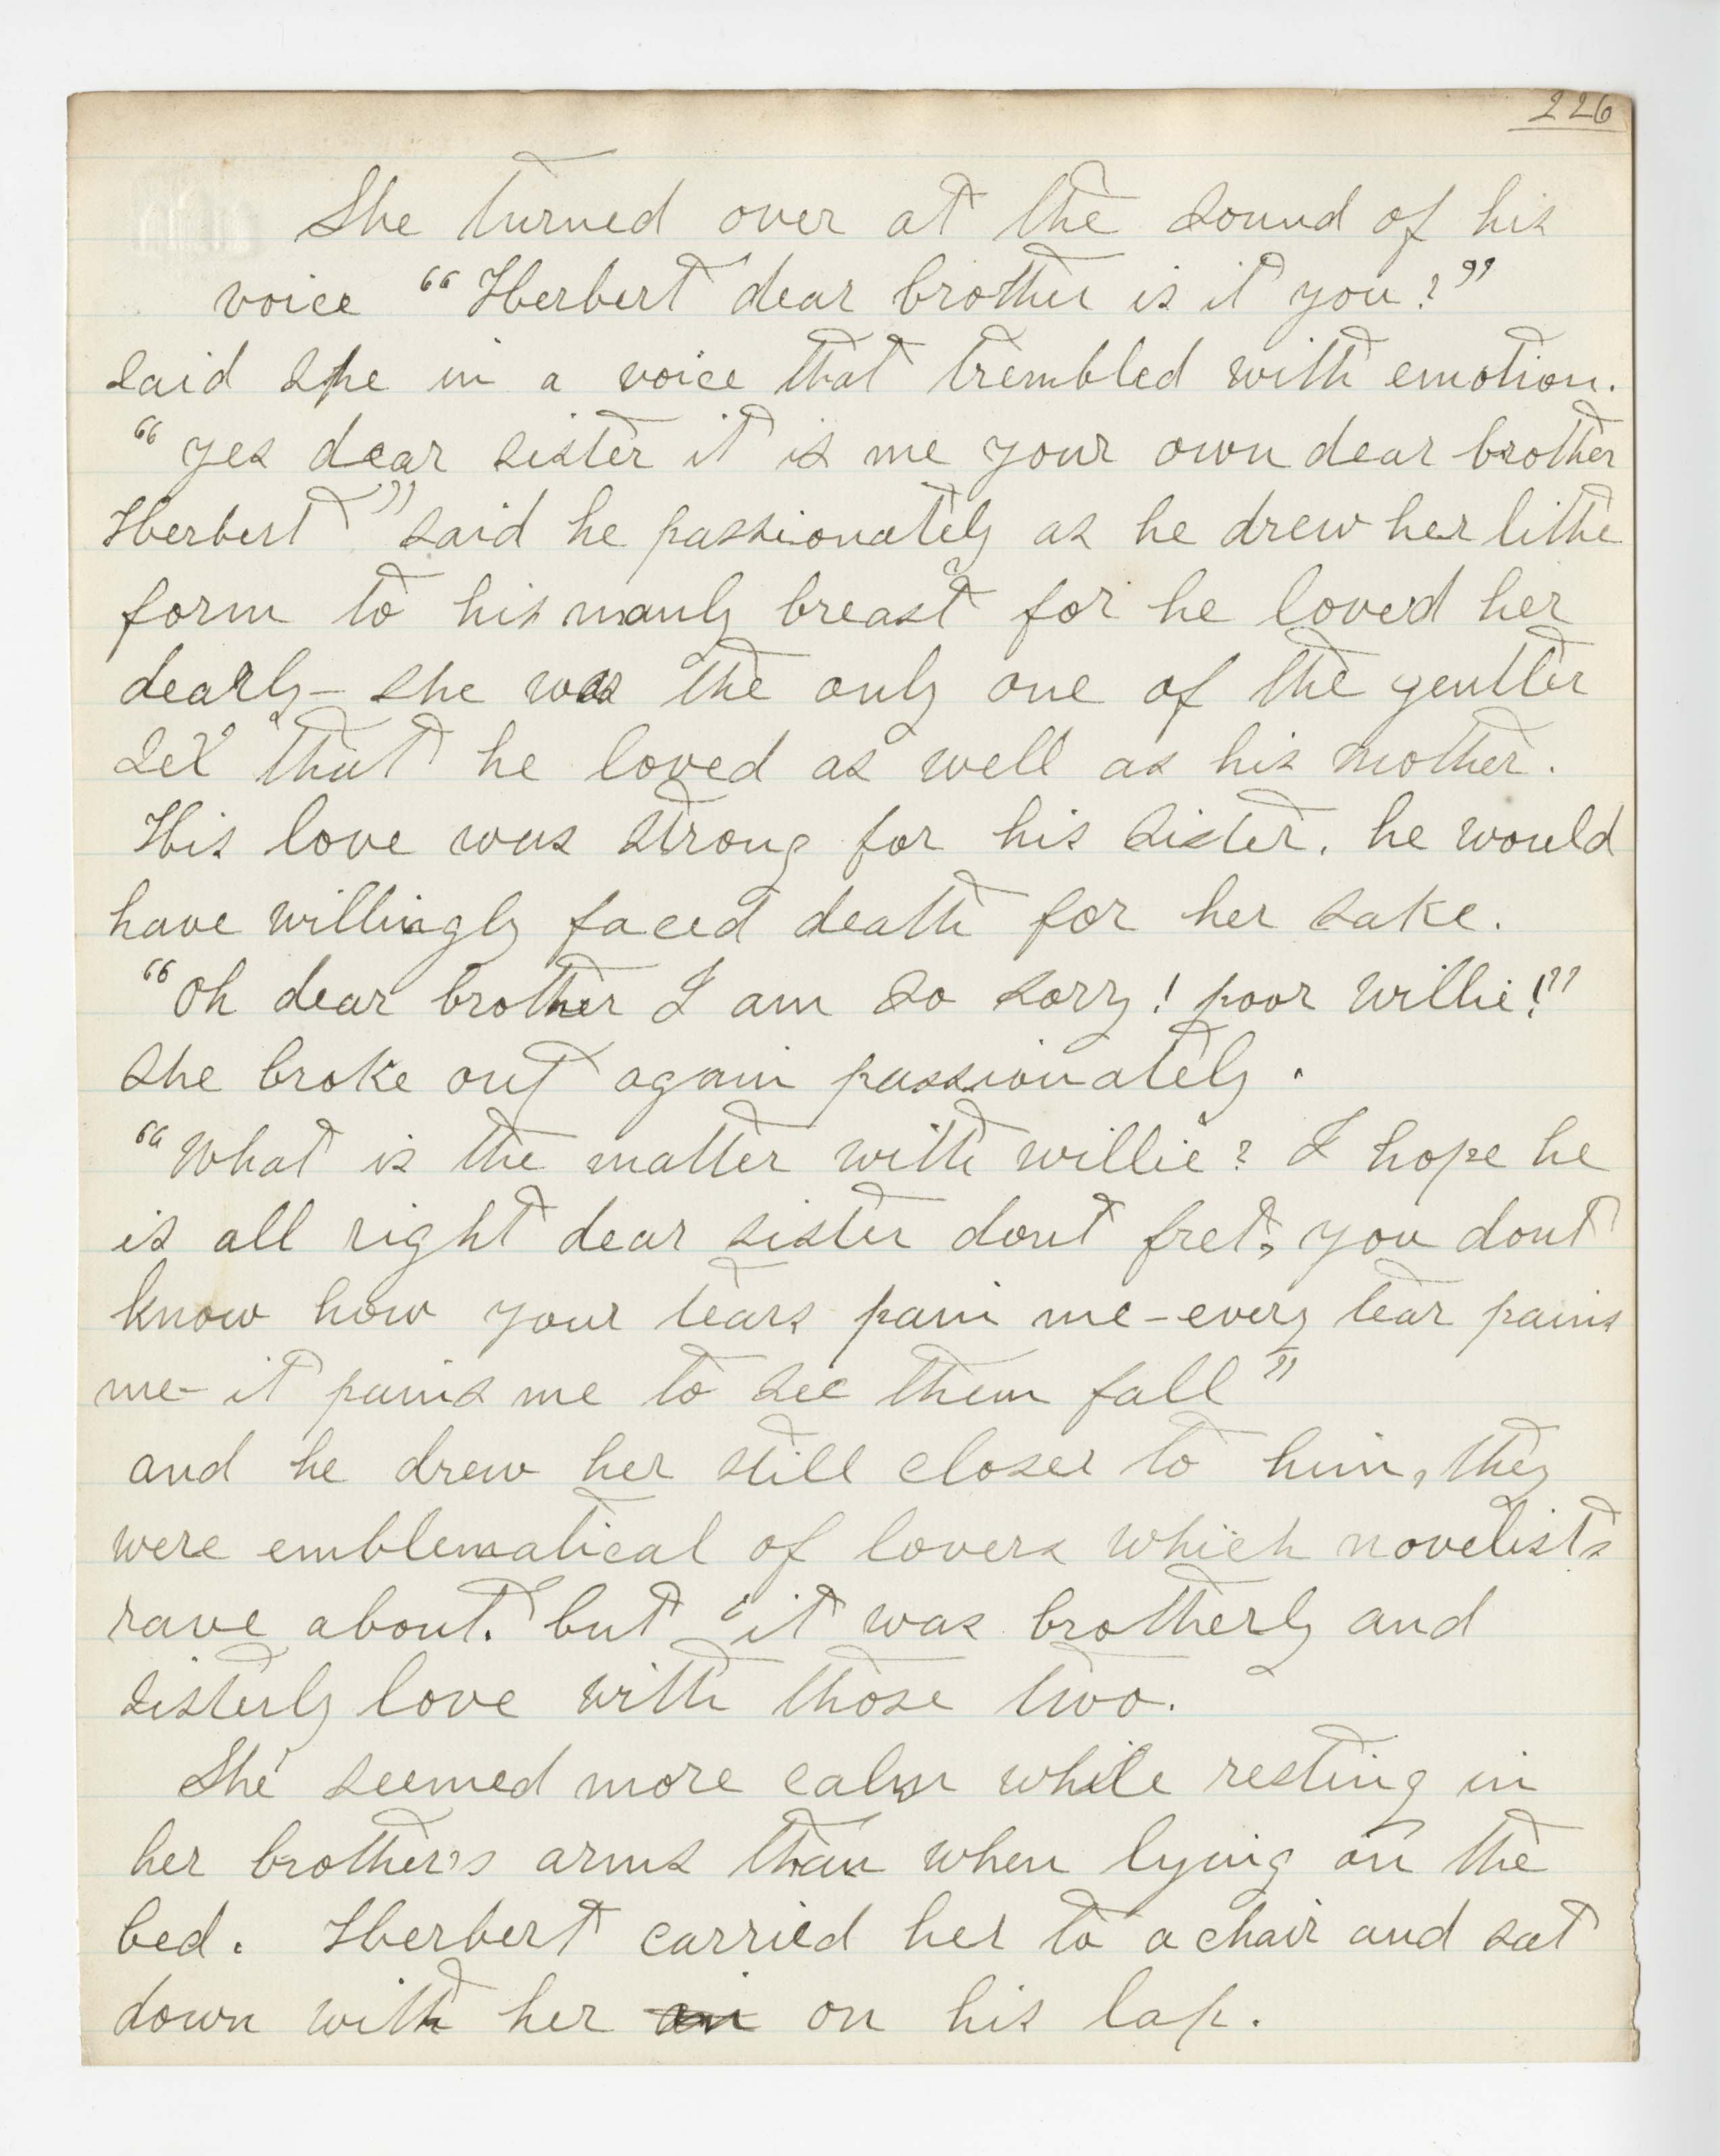 226
She turned over at the sound of his
voice "Herbert dear brother is it you?"
said she in a voice that trembled with emotion.
"yes dear sister it is me your own dear brother
Herbert" said he passionately as he drew her lithe
form to his manly breast for he loved her
dearly - she was the only one of the gentler
sex that he loved as well as his mother.
His love was strong for his sister. he would
have willingly faced death for her sake.
"Oh dear brother I am so sorry! poor Willie!"
she broke out again passionately.
"What is the matter with willie? I hope he
is all right dear sister dont fret, you dont
know how your tears pain me - every tear pains
me - it pains me to see them fall"
and he drew her still closer to him, they
were emblematical of lovers which novelists
rave about. but it was brotherly and
sisterly love with those two.
She seemed more calm while resting in
her brother's arms than when lying on the
bed. Herbert carried her to a chair and sat
down with her on his lap.